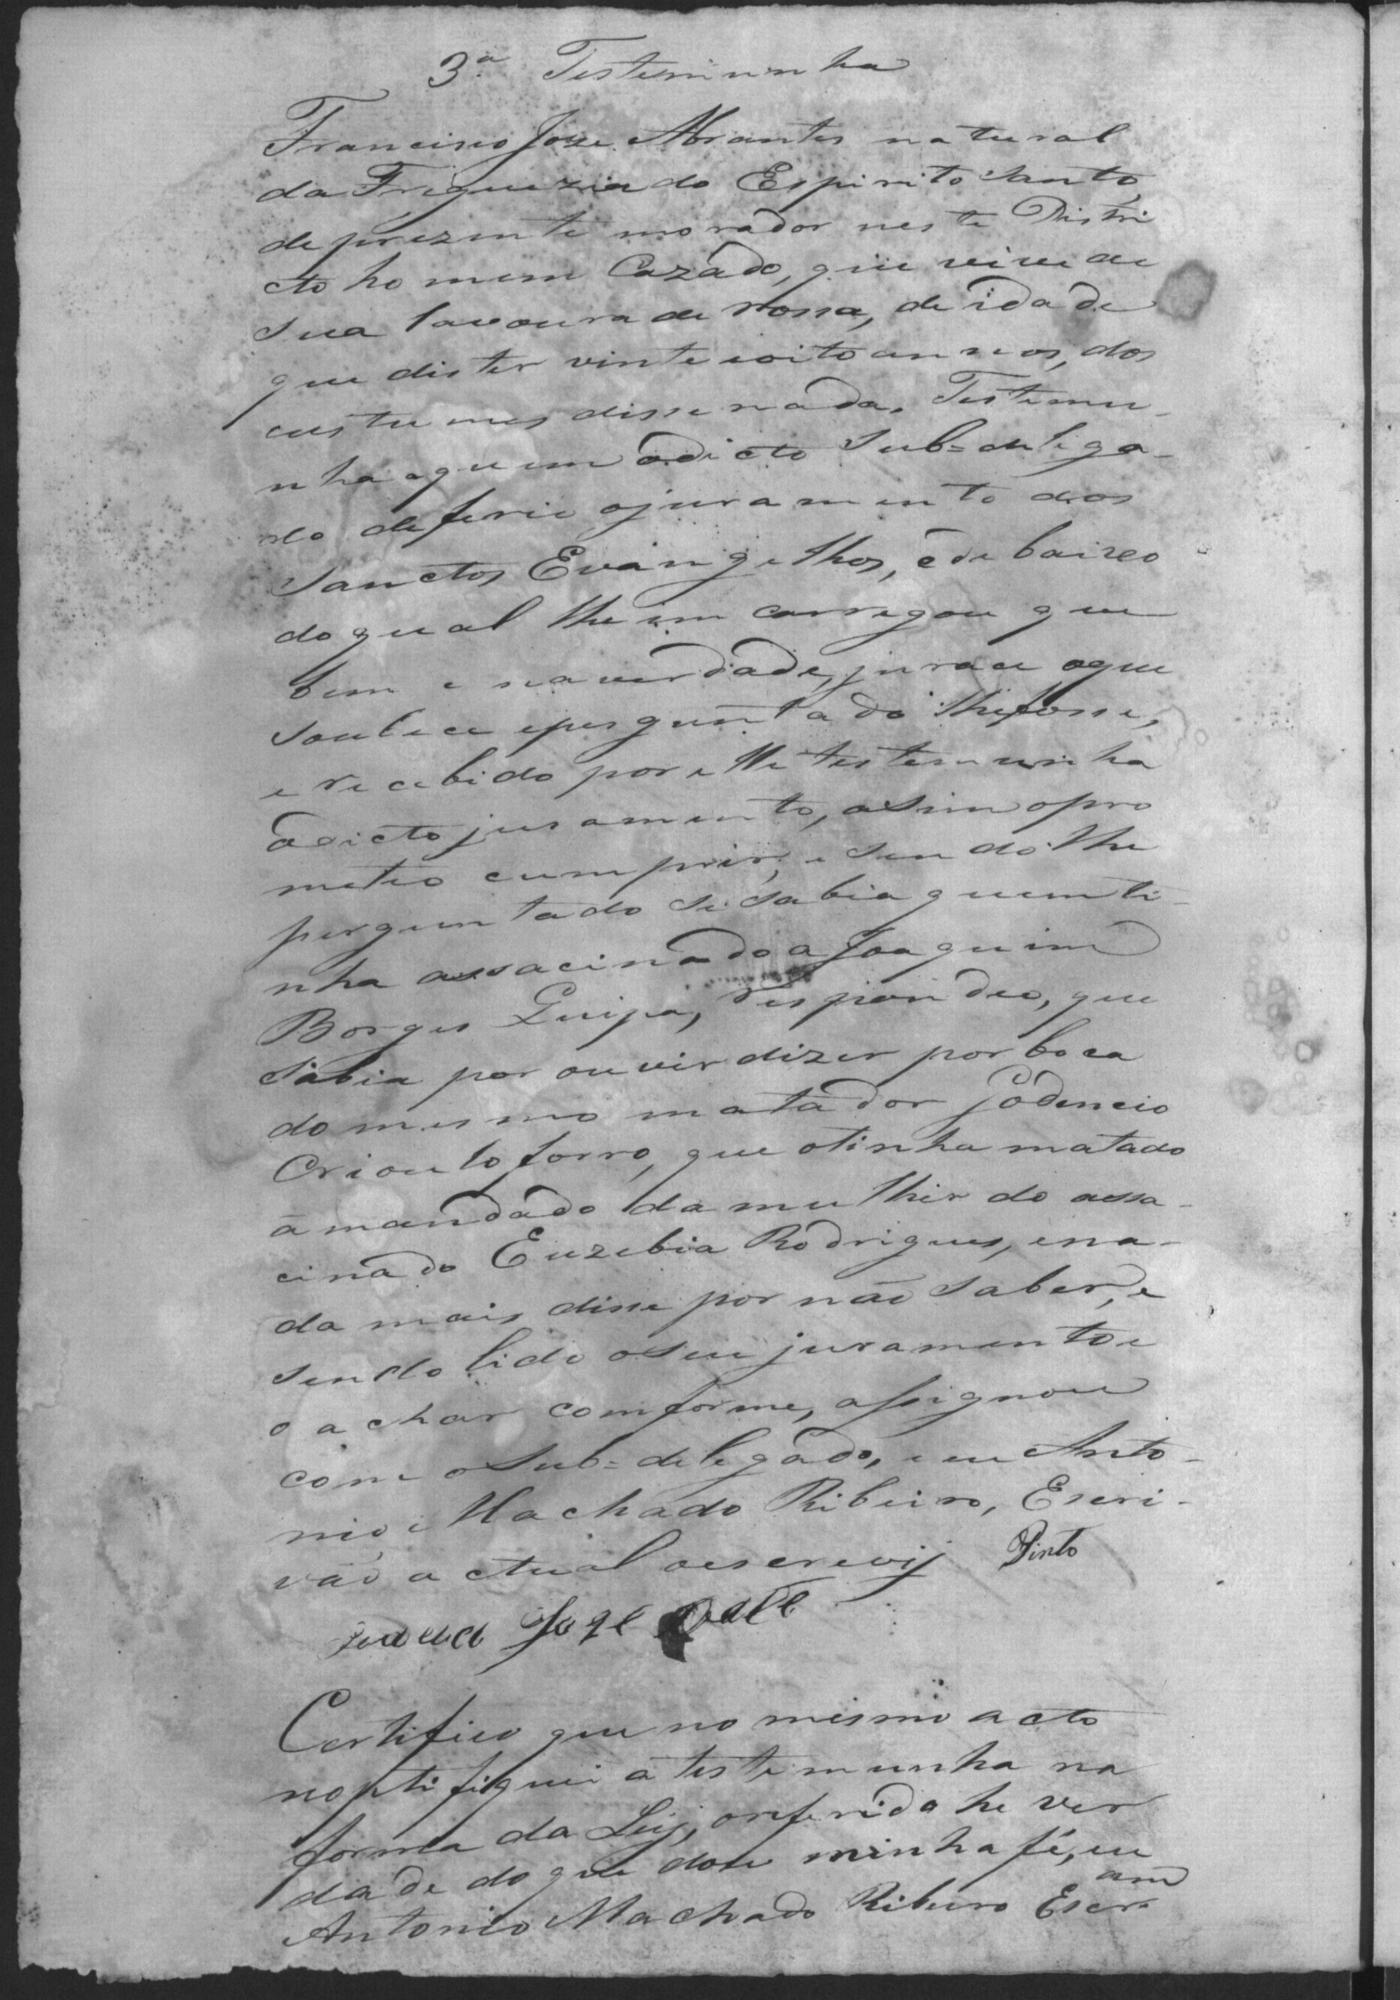 3.ª Testemunha
Francisco Joze Abrantes natural
da Freguezia do Espirito Santo,
de prezente morador neste Distri
cto homem Cazado, que vive de
sua lavoura de rossa, de idade
que dis ter vinte e oito annos, dos
custumes disse nada. Testemu-
nha aquem o dicto Sub=deliga-
do deferio o juramento dos
Sanctos Evangelhos, e de baixo
do qual lhe im carregou que
bem e na verdade, jurace o que
soubece e perguntado lhe fosse,
e recebido por elle testemunha
o dicto juramento, asim o pro
meteo cumprir, e sendo lhe
perguntado se sabia quem ti-
nha assacinado a Joaquim
Borges, respondeo, que
sabia por ouvir dizer por boca
do mesmo matador Godencio
Crioulo forro, que o tinha matado
a mandado da mulher do assa-
cinado Euzebia Rodrigues, e na-
da mais disse por não saber, e
sendo lido o seu juramento e
o achar comforme, assignou
com o Sub=delegado, e eu Anto-
nio Machado Ribeiro, Escri-
vão actual o escrevij Pinto
Joze
Certifico que no mesmo acto
noptifiquei a testemunha na
forma da Leij, o referido he ver
dade do que dou minha fé, eu
Antonio Machado Ribeiro Escr.am